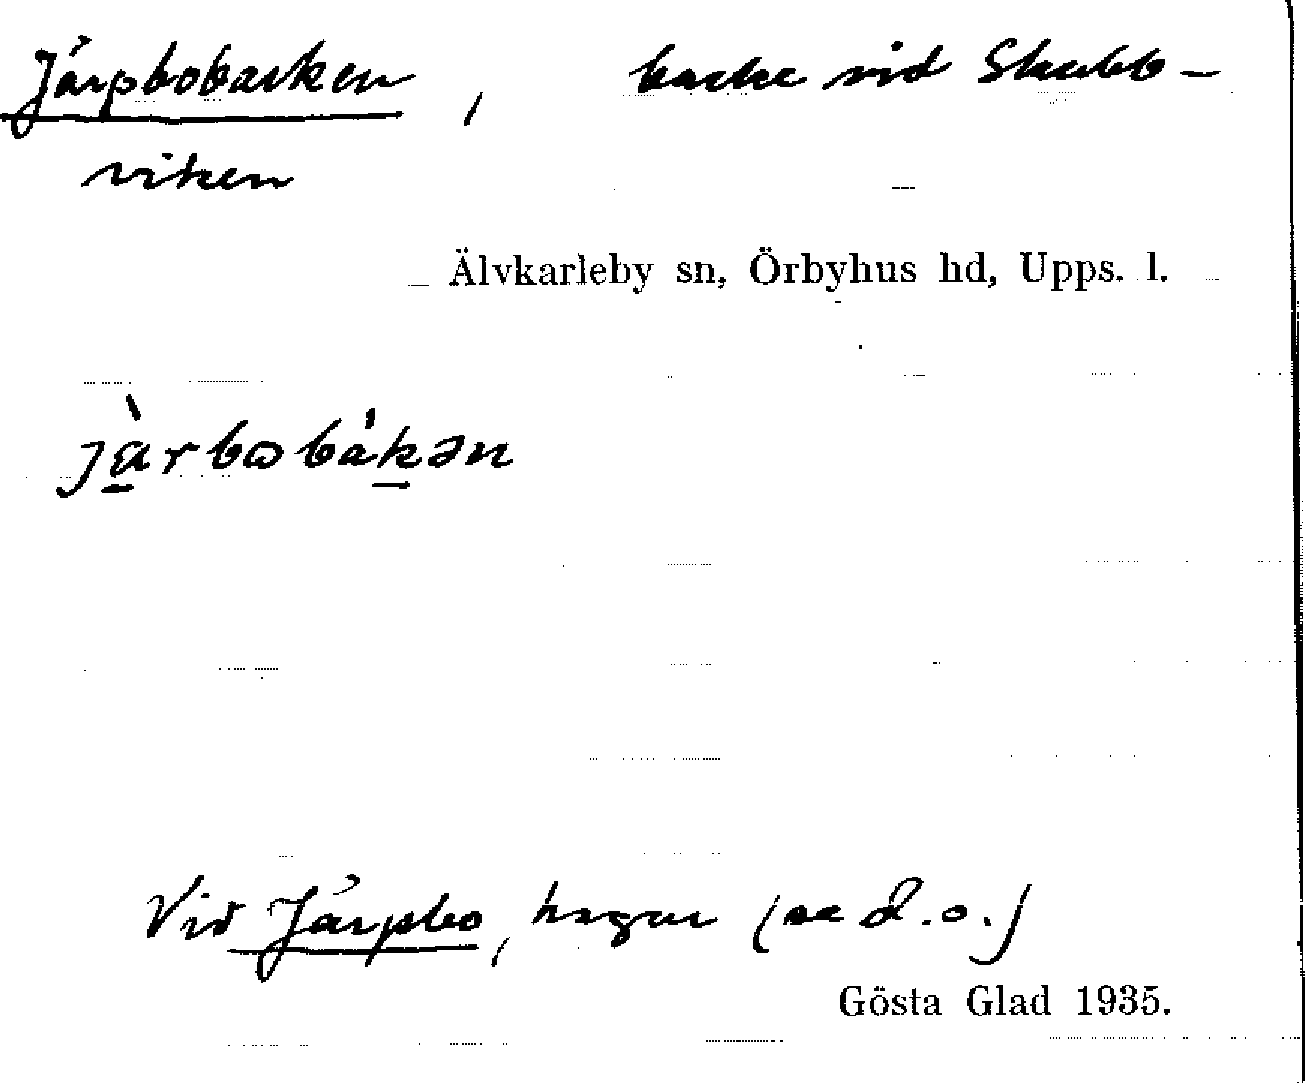 Järpbobacken, backe vid Skabb-
viken
Älvkarleby sn, Örbyhus hd, Upps. l.
jàrbobákən
Vid Järpbo, hagar (se d.o.)
Gösta Glad 1935.